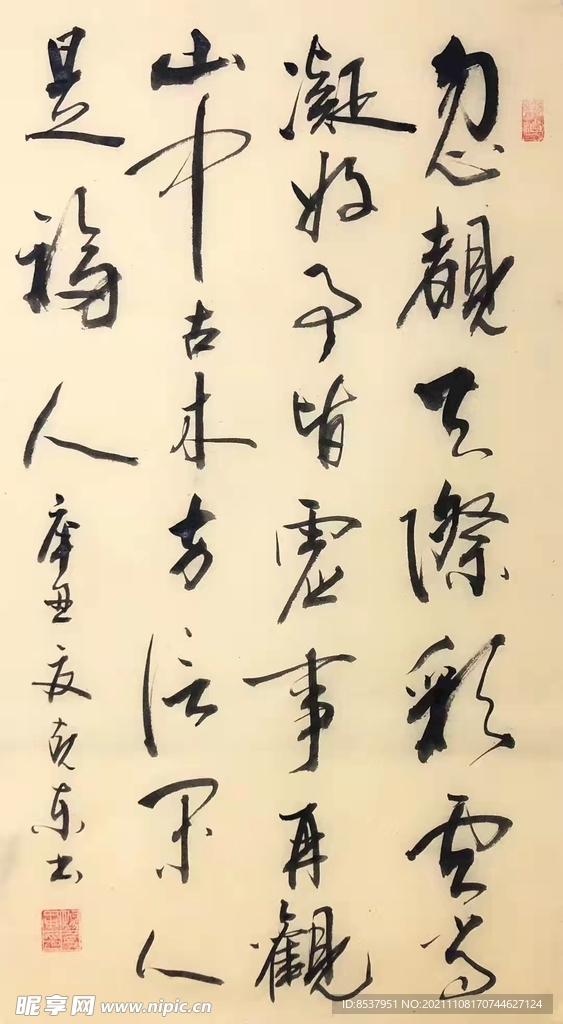 忽覩天際彩雲常
凝好事皆虛事再觀
山中古木方信閑人
是福人
辛丑夏克东书
昵图网 www.nipic.cn
ID:8537951 NO:20211108170744627124